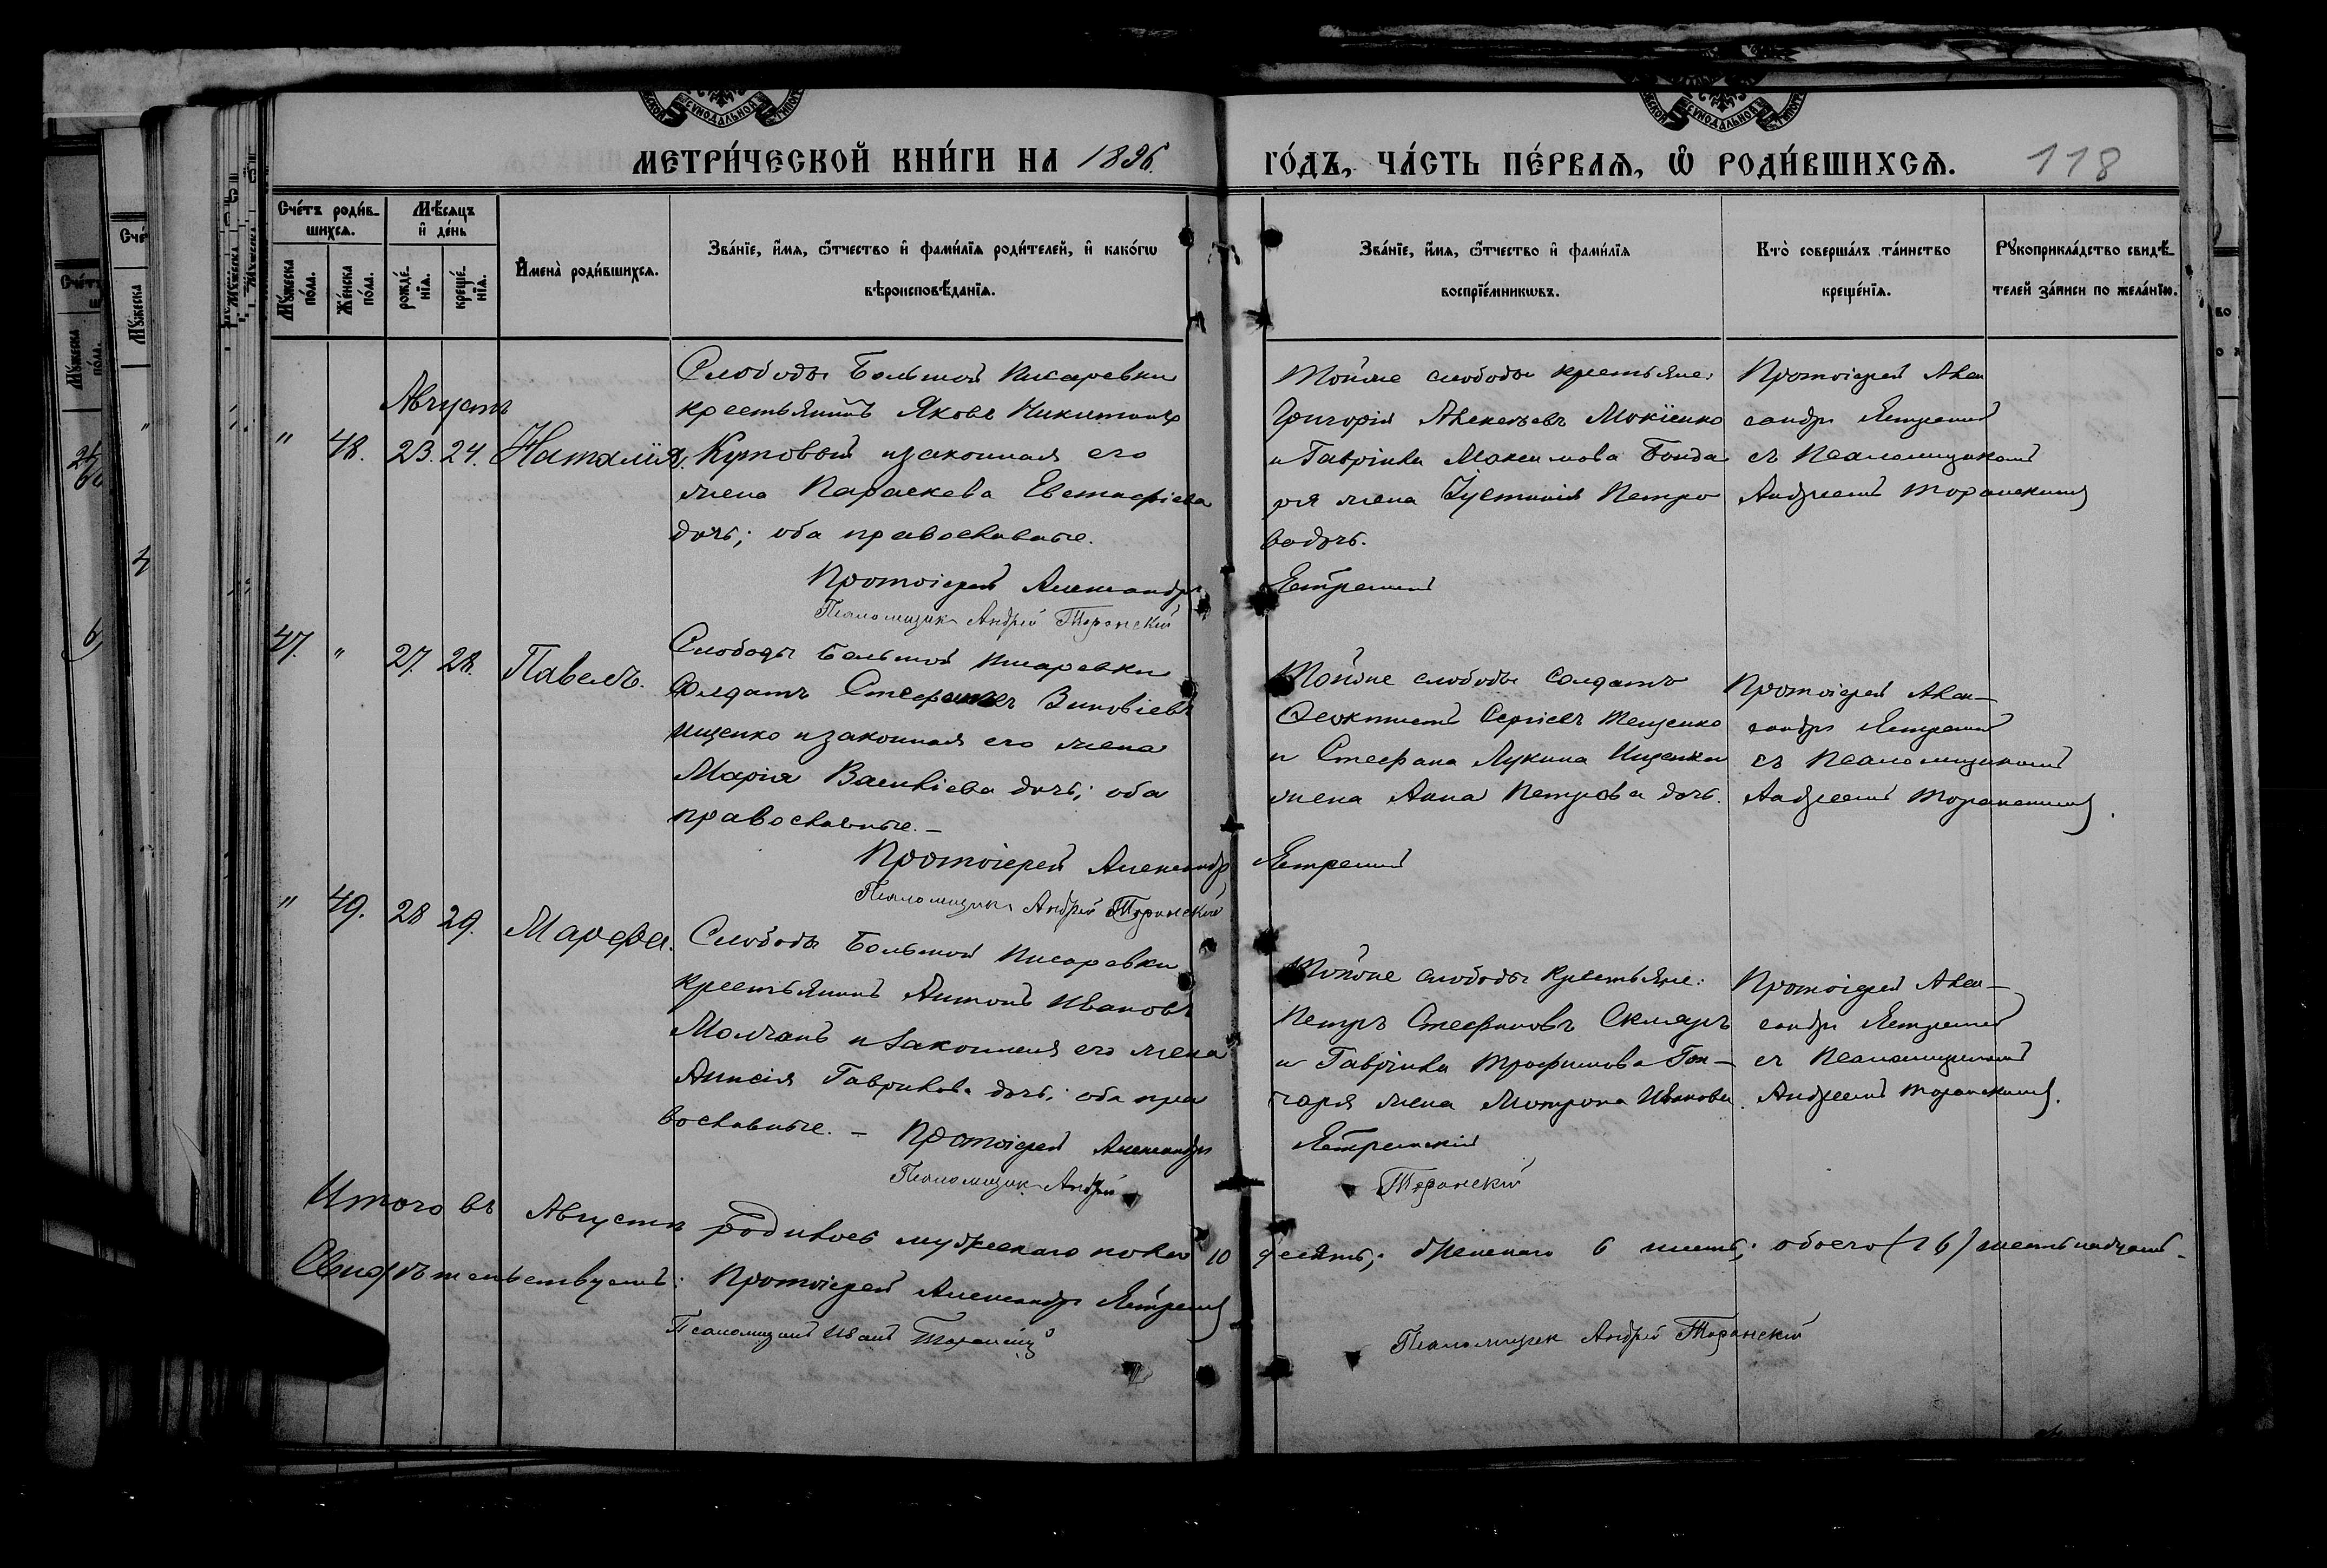 МЕТРИ́ЧЕСКОЙ КНИ́ГИ НА 1896. ГО́ДЪ, ЧА́СТЬ ПЕ́РВАЯ, Ѡ РОДИ́ВШИХСЯ. 118
Сче́тъ роди́в-
шихся.
Мѣ́сяцъ
и де́нь
Му́жеска
по́ла.
Же́нска
по́ла.
рожде́-
нїя.
креще́-
нїя.
Имена̀ роди́вшихся.
Зва́нїе, и́мя, ѻ́тчество и фами́лїя роди́телей, и како́гѡ
вѣроисповѣ́данїя.
Зва́нїе, и́мя, ѻ́тчество и фами́лїя
воспрїе́мникѡвъ.
Кто̀ соверша́лъ та́инство
креще́нїя.
Рꙋкоприкла́дство свидѣ́-
телей за́писи по жела́нїю.
Августъ
" 48. 23. 24. Наталія,
Слободы Большой Писаревки
крестьянинъ Яковъ Никитинъ
Кутовой и законная его
жена Параскева Евстафіева
дочь; оба православные.
Протоіерей Александръ Ястремскій
Псаломщикъ Андрей Торанскій
Тойже слободы крестьяне:
Григорій Алексѣевъ Мокіенко
и Гавріила Максимова Бонда
ря жена Іустинія Петро
ва дочь.
Протоіерей Алек
сандръ Ястремскій
съ Псаломщикомъ
Андреемъ Торанскимъ
47. " 27. 28. Павелъ.
Слободы Большой Писаревки
Солдатъ Стефанъ Зиновіевъ
Ищенко и законная его жена
Марія Васильева дочь; оба
православные. –
Протоіерей Александръ Ястремскій
Псаломщикъ Андрей Торанскій
Тойже слободы солдатъ
Феоктистъ Сергіевъ Тещенко
и Стефана Лукина Ищенка
жена Анна Петрова дочь.
Протоіерей Алек–
сандръ Ястремскій
съ Псаломщикомъ
Андреемъ Торанскимъ.
" 49. 28 29. Марфа.
Слободы Большой Писаревки
крестьянинъ Антонъ Ивановъ
Молчанъ и законная его жена
Анисія Гавриилова дочь; оба пра
вославные. –
Протоіерей Александръ Ястремскій
Псаломщикъ Андрей Торанскій
Тойже слободы крестьяне:
Петръ Стефановъ Скляръ
и Гавріила Трофимова Гон–
чаря жена Мотрона Иванова.
Протоіерей Алек–
сандръ Ястремскій
съ Псаломщикомъ
Андреемъ Торанскимъ.
Итого въ Августѣ родилось мужескаго пола 10 десять; женскаго 6 шесть; обоего (16) шестнадцать.
Свидѣтельствуютъ: Протоіерей Александръ Ястремскій
Псаломщикъ Иванъ
Псаломщикъ Андрей Торанскій